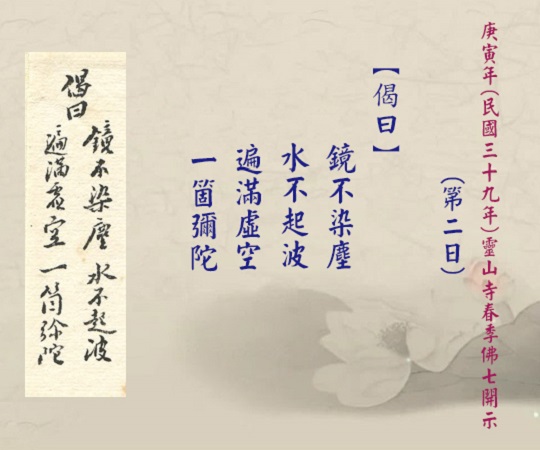 庚寅年(民國三十九年)靈山寺春季佛七開示
(第二日)
【偈曰】
鏡不染塵
水不起波
遍滿虛空
一箇彌陀
偈曰
鏡不染塵 水不起波
遍滿虛空 一箇弥陀